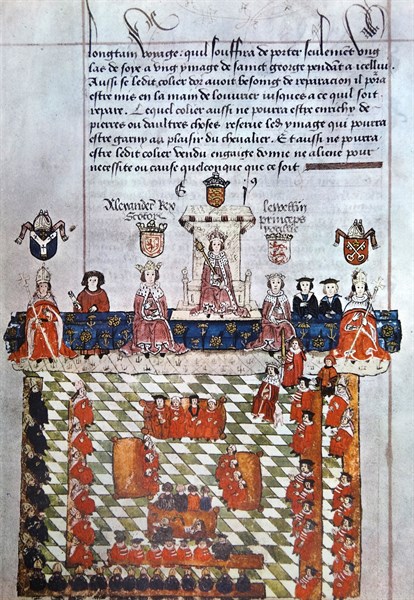 longtain voyage. quil souffira de porter seulement ung
las de soye a ung ymage de sainct george pendāt a icellui
Aussi se ledit colier dor avoit besoing de reparacion il po͞ra
estre mis en la main de louvrier iusques a ce quil soit
repare. Lequel colier aussi ne pourra estre enrichy de
pierres ou daultres choses reserve led ymage qui pourra
estre garny au plaisir du chevalier. Et aussi ne pourra
estre ledit colier vendu engaige donne ne aliene pour
necessite ou cause quelconque que ce soit
Alexander Rex
Scotorū
Lewellin
princeps